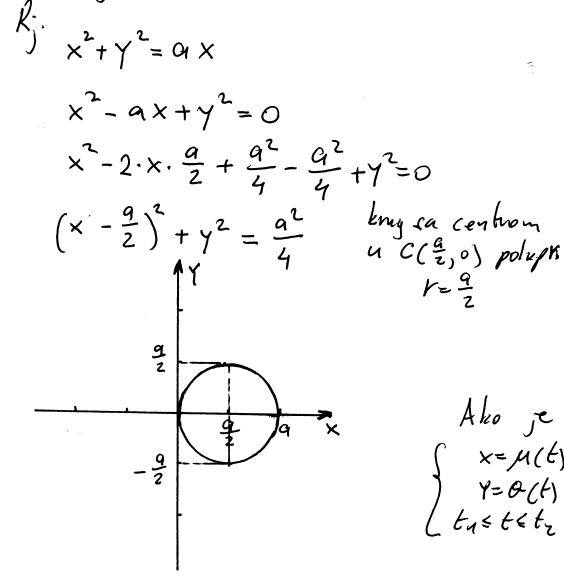 Rj.
x² + y² = ax
x² - ax + y² = 0
x² - 2·x·a/2 + a²/4 - a²/4 + y² = 0
(x - a/2)² + y² = a²/4
krug sa centrom
u C(a/2, 0) polupr
r = a/2
Y
a/2
a/2
a
x
-a/2
Ako je
x = μ(t)
y = θ(t)
t₁ ≤ t ≤ t₂